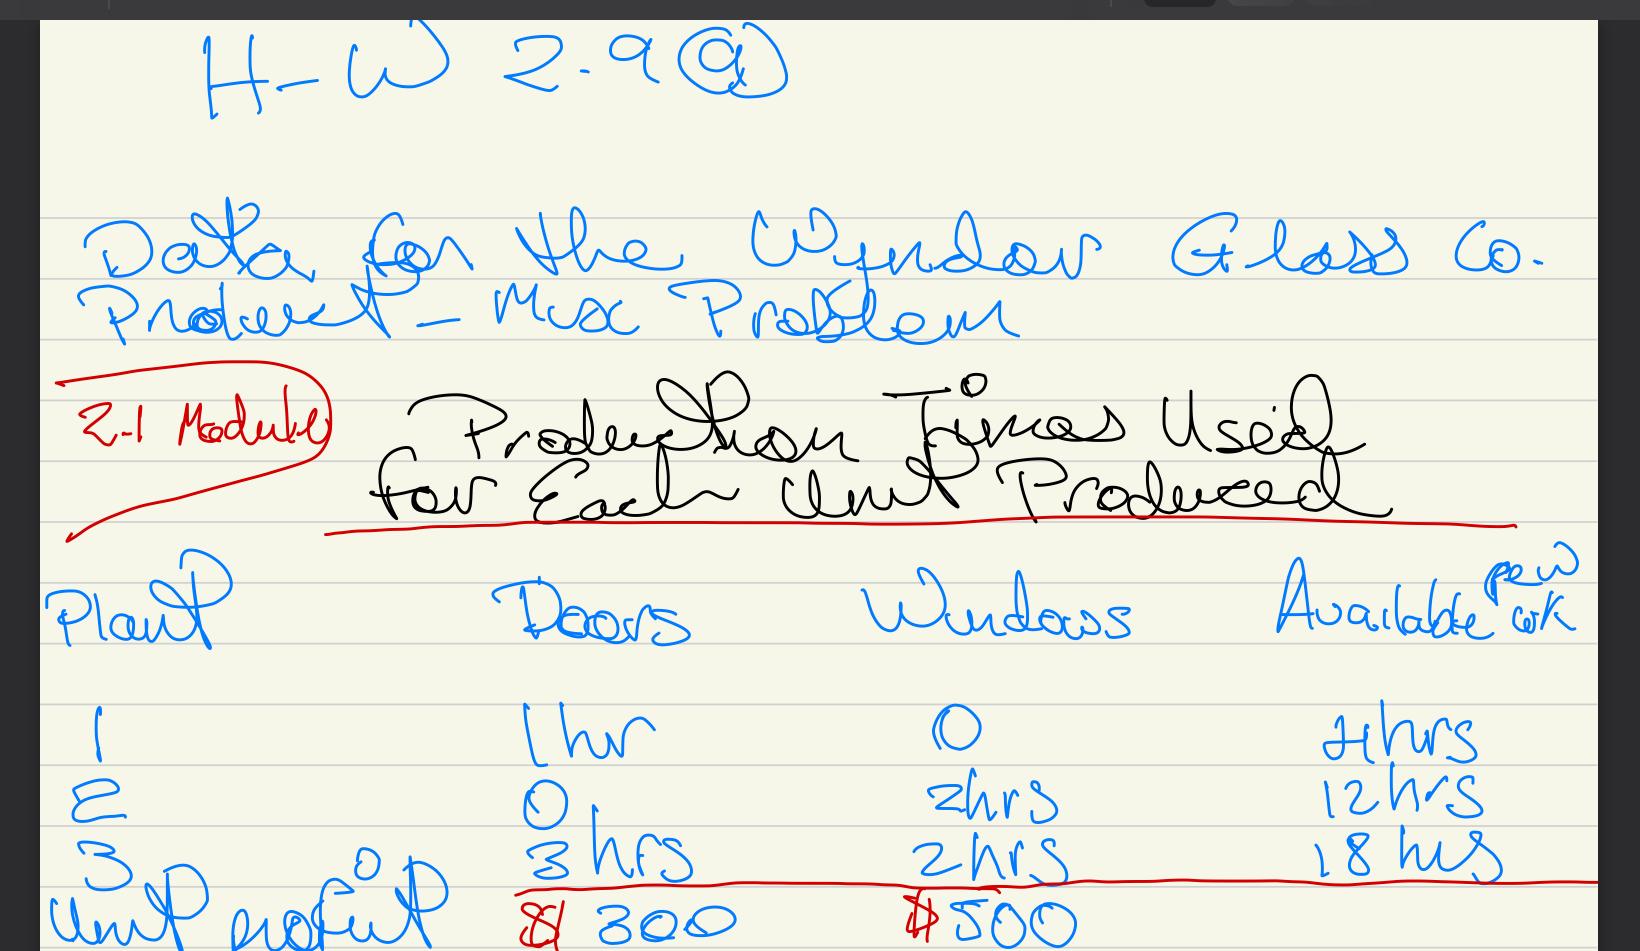 H-W 2.9 a
Data for the Wyndor Glass Co.
Product-Mix Problem
2.1 Module
Production Times Used
for Each Unit Produced
Plant Doors Windows Available per wk
1 1hr 0 4hrs
2 0 2hrs 12hrs
3 3hrs 2hrs 18hrs
Unit profit $300 $500